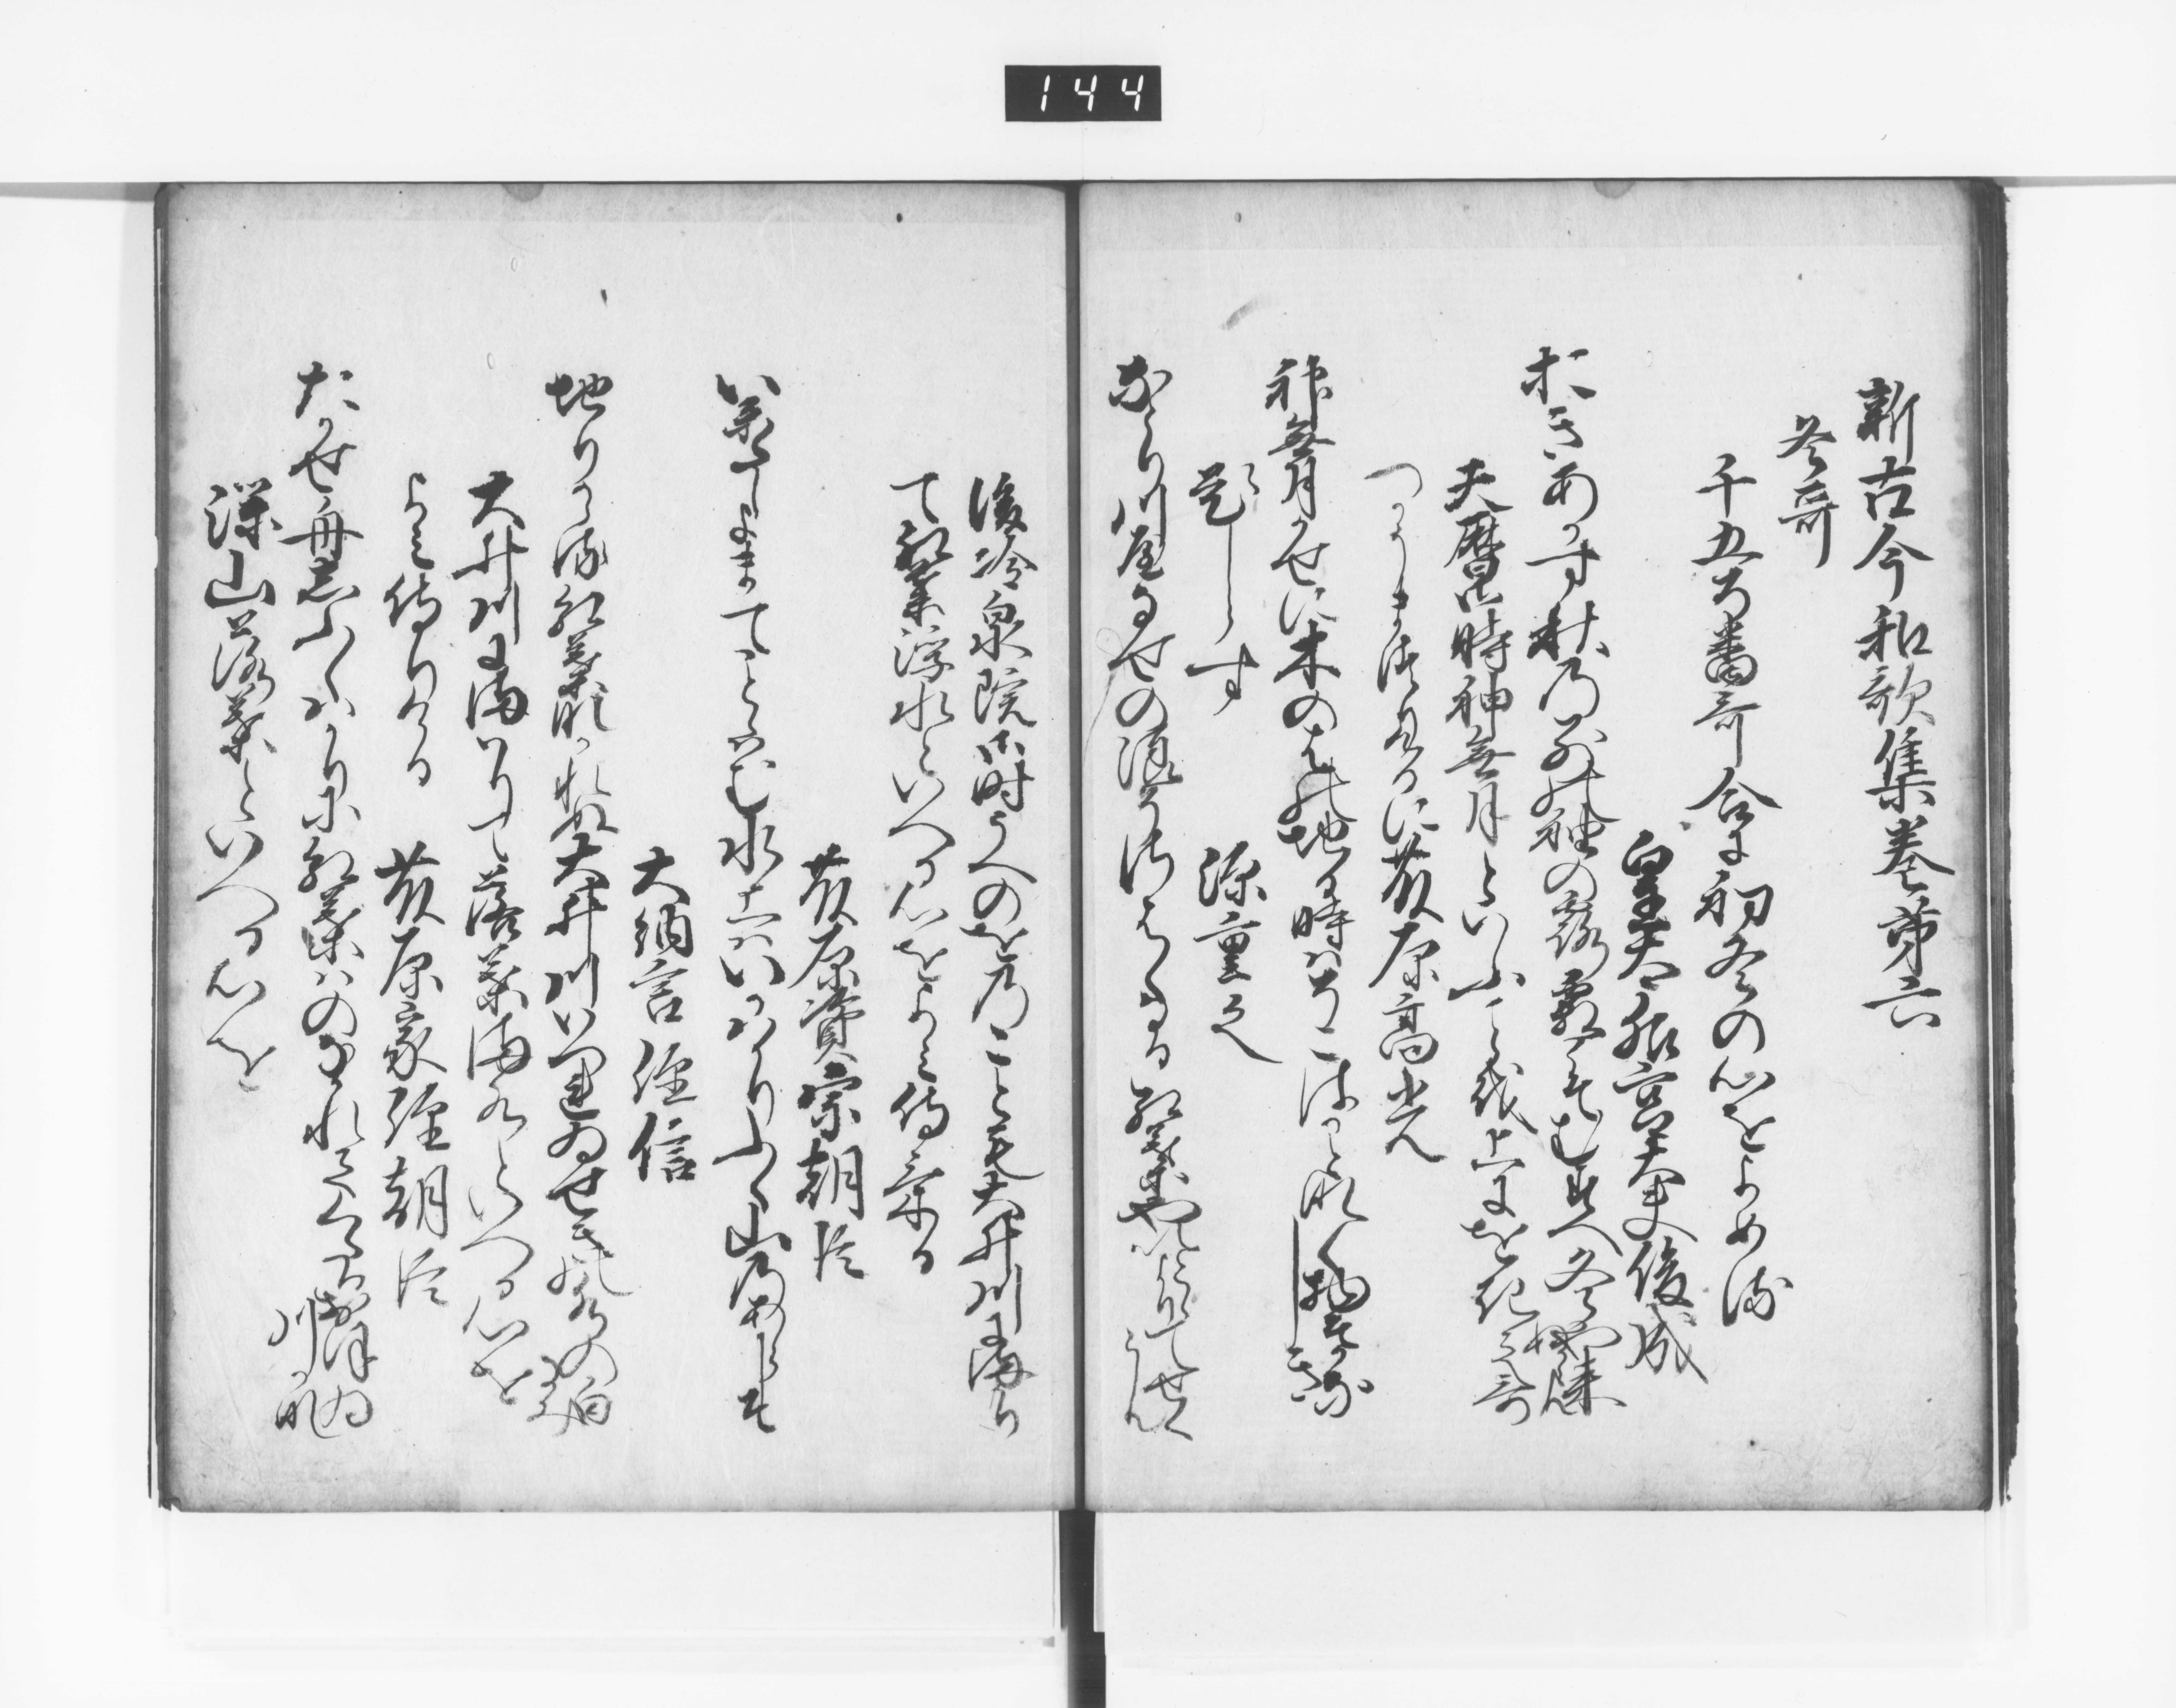 144
新古今和歌集巻第六
冬哥
千五百番哥合に初冬の心をよめる
皇太后宮大夫俊成
おきあかす秋の別の袖の露霜こそむすへ冬や来ぬらん
天暦御時神無月といふことを上にをきて哥
つかうまつりけるに藤原高光
神無月風に木のはの地時はそこはかとなく物そかなしき
題しらす
源重之
なとり川やなせの浪そさはくなる紅葉やいとゝよりてせくらん
後冷泉院御時うへのをのことも大井川にまかり
て紅葉浮水といへる心をよみ侍けるに
藤原資宗朝臣
いかたしよまてこととはむ水上はいかはかりふく山のあらしそ
大納言経信
地りかゝる紅葉なかれぬ大井川いつれゐせきの水のしからみ
大井川にまかりて落葉満水といへる心を
よみ侍りける
藤原家経朝臣
たかせ舟しふくはかりに紅葉はのなかれてくたる大井川かな
深山落葉といへる心を